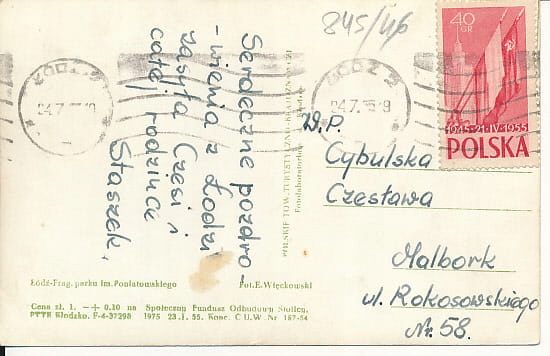 845/46
40
GR
1945-21-IV-1955
POLSKA
ŁÓDŹ 3
ŁÓDŹ 3
Serdeczne pozdro-
-wienia z Łodzi
zasyła Czesi i
całej rodzince
Staszek.
POLSKIE TOW. TURYSTYCZNO-KRAJOZNAWCZE
Fotolaboratorium
W.P.
Cybulska
Czesława
Malbork
ul. Rokosowskiego
Nr. 58.
Łódź-Frag. parku im. Poniatowskiego
Fot. E. Więckowski
Cena zł. 1. —+ 0.10 na Społeczny Fundusz Odbudowy Stolicy.
PTTK Kłodzko. F-4-37298 1975 23.I.55. Konc. C U.W. Nr 157-54